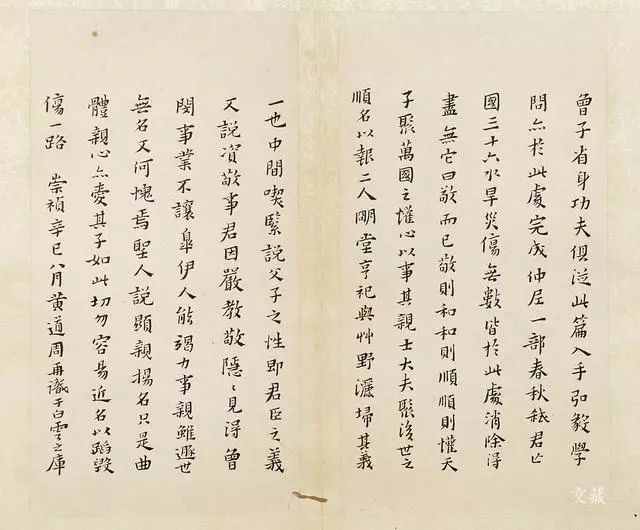 曾子省身功夫俱從此篇入手弘毅學
問亦於此處完成仲尼一部春秋弒君亡
國三十六水旱災傷無數皆於此處消除得
盡無它曰敬而已敬則和和則順順則懽天
子聚萬國之懽心以事其親士大夫聚後世之
順名以報二人明堂享祀與艸野灑埽其義
一也中間喫緊說父子之性即君臣之義
又說資敬事君因嚴教敬隱〻見得曾
閔事業不讓皐伊人能竭力事親雖遯世
無名又何愧焉聖人說顯親揚名只是曲
體親心亦憂其子如此切勿容易近名以蹈毀
傷一路 崇禎辛巳八月黃道周再識于白雲之庫
文藏